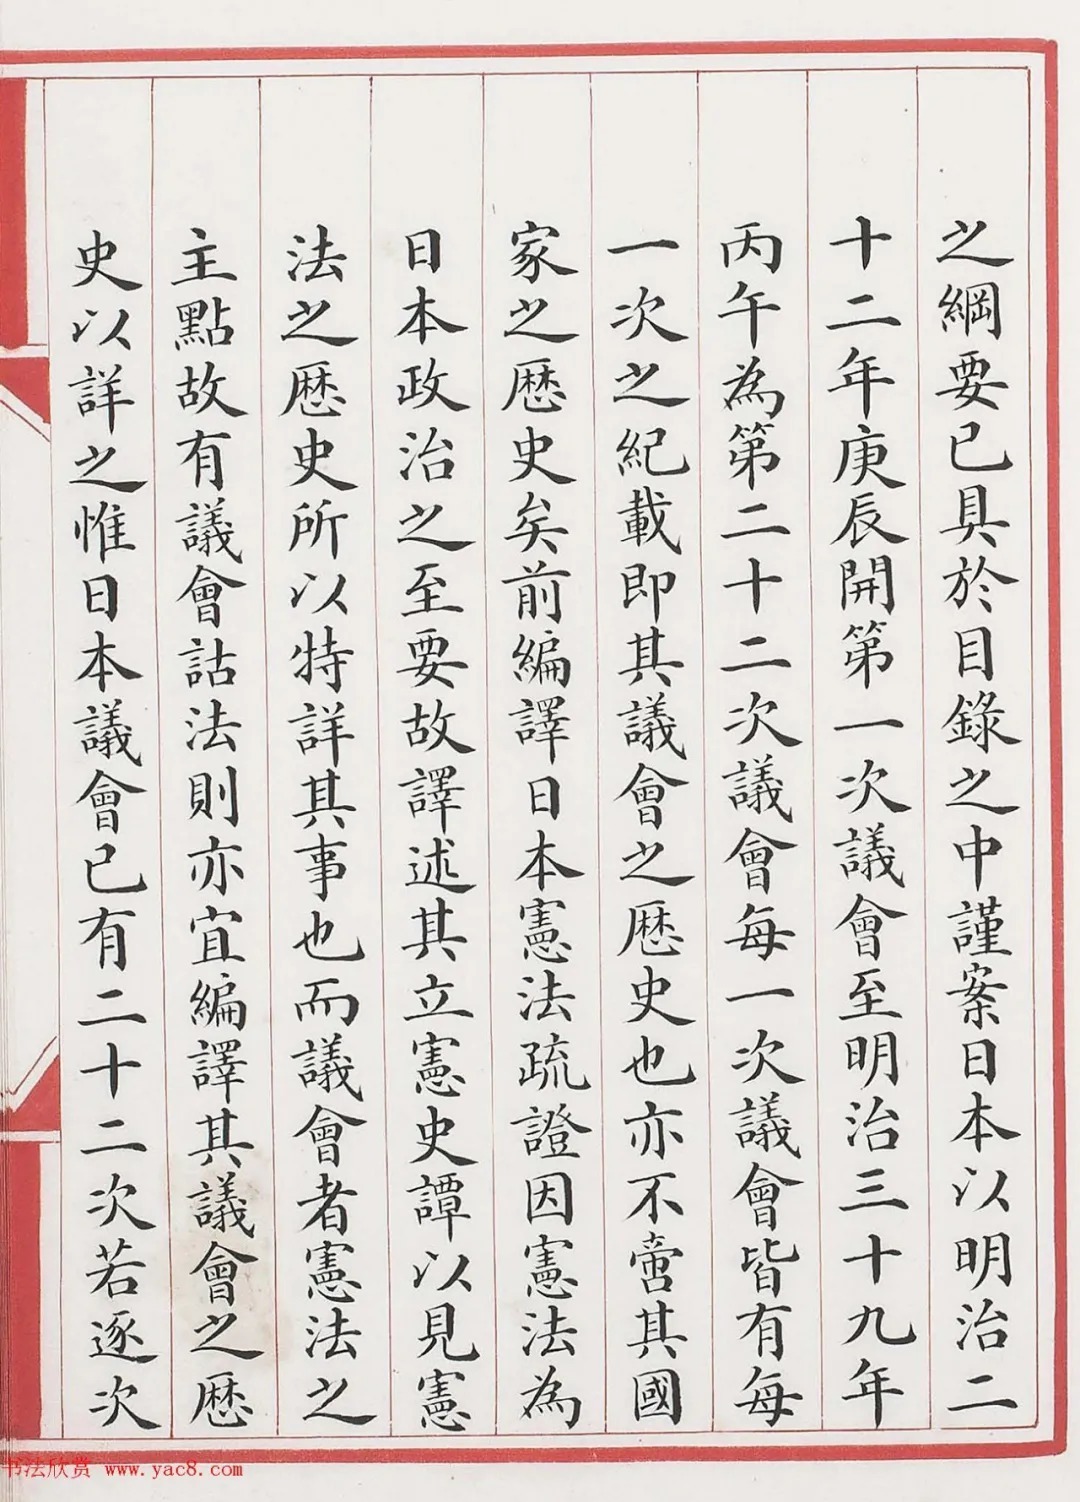 之綱要已具於目錄之中謹案日本以明治二
十二年庚辰開第一次議會至明治三十九年
丙午為第二十二次議會每一次議會皆有每
一次之紀載即其議會之歷史也亦不啻其國
家之歷史矣前編譯日本憲法疏證因憲法為
日本政治之至要故譯述其立憲史譚以見憲
法之歷史所以特詳其事也而議會者憲法之
主點故有議會詁法則亦宜編譯其議會之歷
史以詳之惟日本議會已有二十二次若逐次
书法欣赏 www.yac8.com